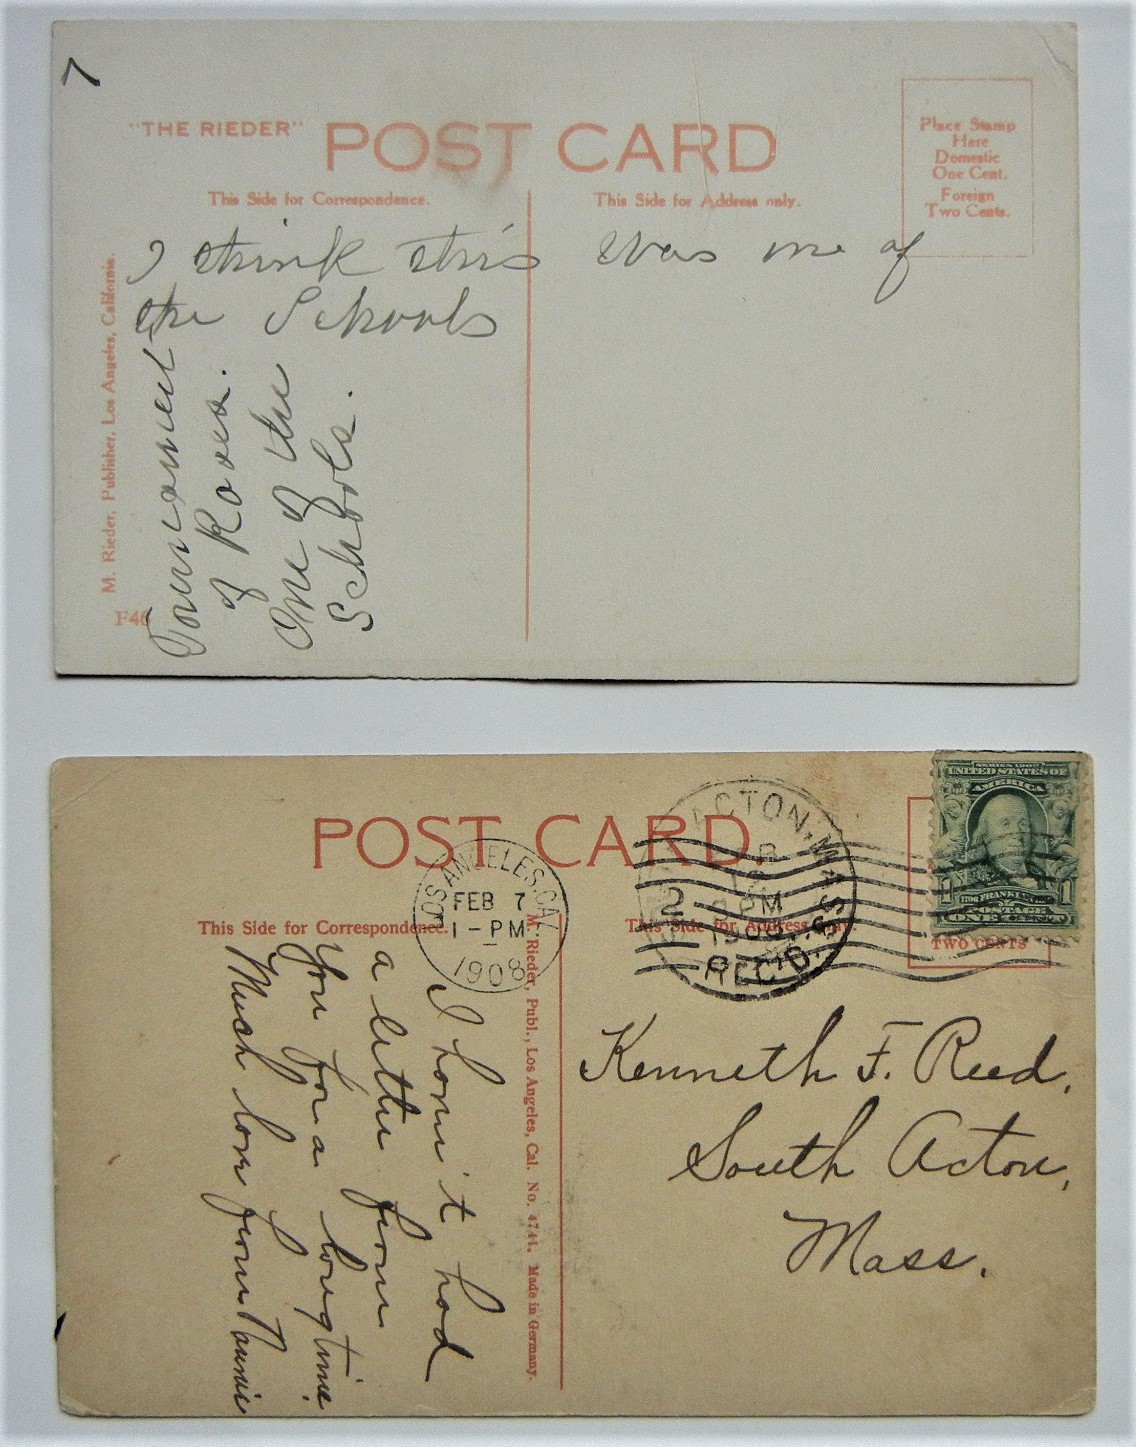 7
"THE RIEDER" POST CARD
Place Stamp
Here
Domestic
One Cent.
Foreign
Two Cents.
This Side for Correspondence.
This Side for Address only.
I think this was one of
the Schools
Tournament
of Roses.
One of the
Schools.
M. Rieder, Publisher, Los Angeles, California.
F46
POST CARD.
This Side for Correspondence.
This Side for Address only.
LOS ANGELES, CAL.
FEB 7
1-PM
1908
ACTON, MASS
12
2 PM
1908
REC'D.
2
SERIES 1902
UNITED STATES OF
AMERICA
1 1
FRANKLIN
POSTAGE
ONE CENT
TWO CENTS
I haven't had
a letter from
you for a long time.
Much love from
M. Rieder, Publ., Los Angeles, Cal. No. 4744. Made in Germany.
Kenneth F. Reed.
South Acton,
Mass.